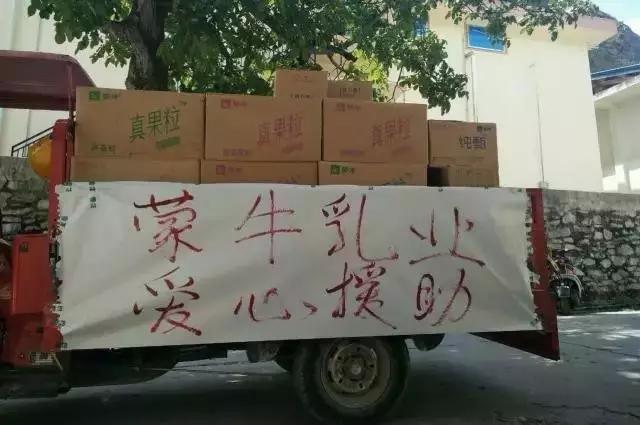 真果粒
真果粒
真果粒
纯甄
蒙牛乳业
爱心援助